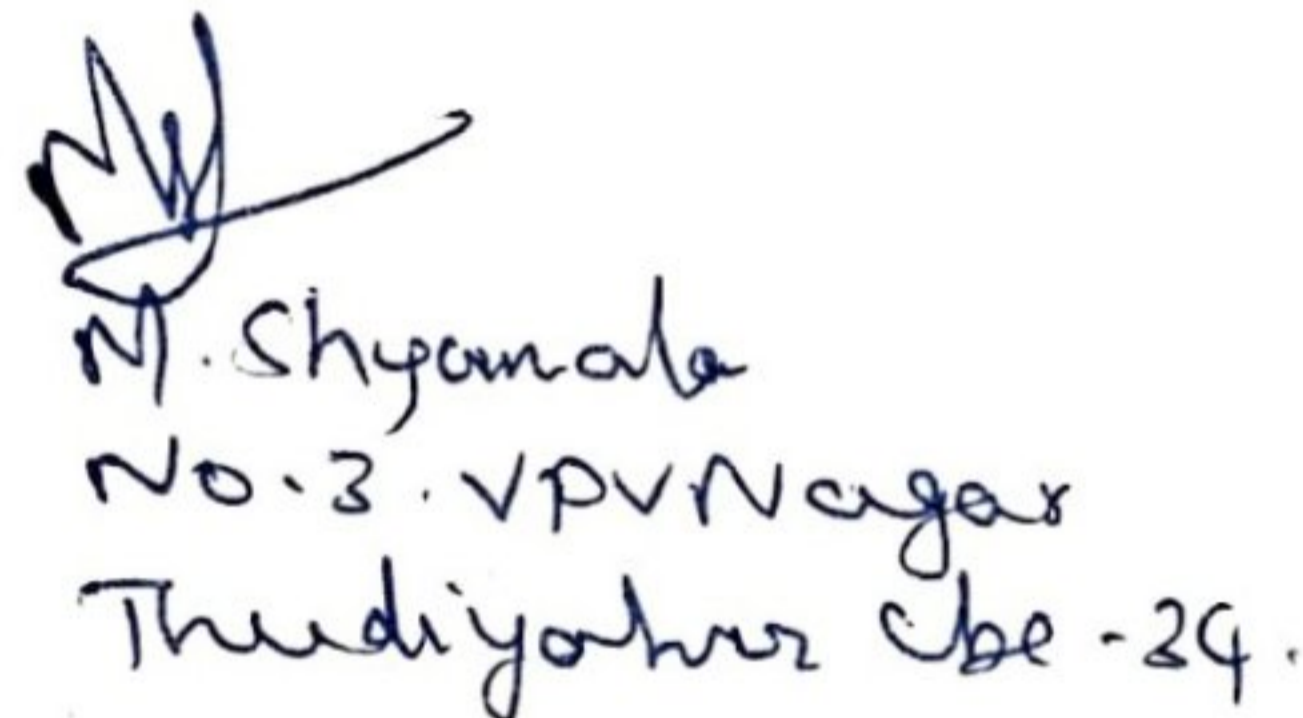 M. Shyamala
No. 3. VPV Nagar
Thudiyalur Cbe - 34.